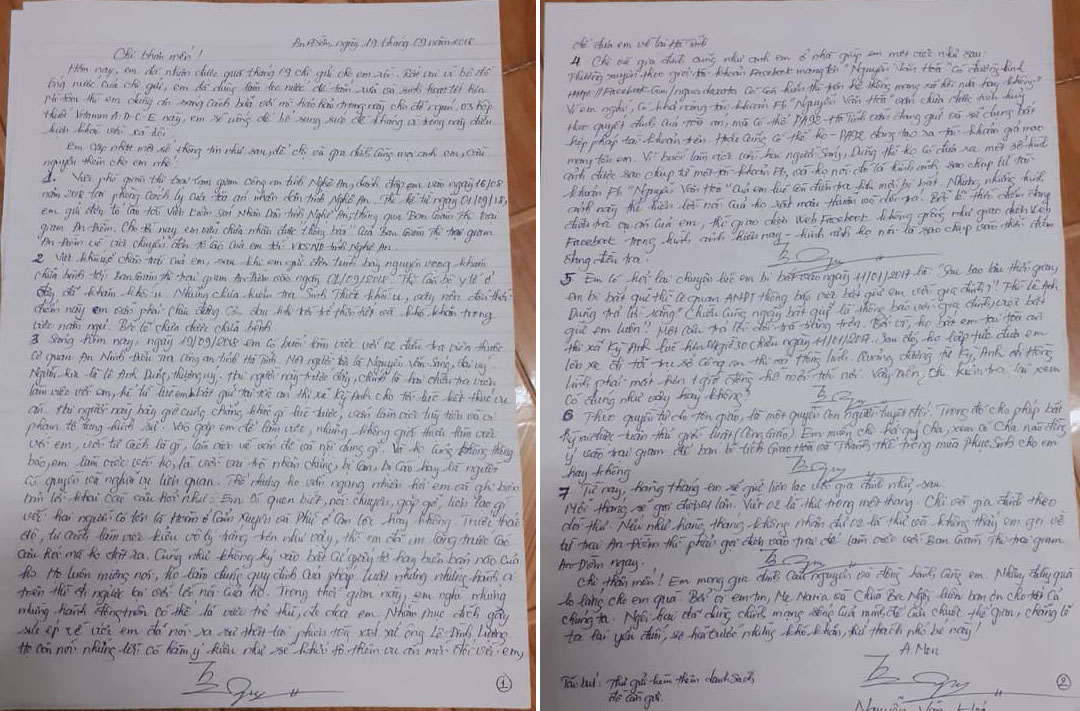 An Điềm, ngày 19 tháng 09 năm 2018
Chị thân mến!
Hôm nay, em đã nhận được quà tháng 9 chị gửi cho em rồi. Rất vui vì bộ đồ
ống nước của chị gửi, em đã dùng làm lọc nước để tắm rửa và sinh hoạt tốt hơn.
thuốc Vitamin A-D-C-E này, em sẽ uống để bổ sung sức đề kháng vì trong này điều
kiện khác với xã hội.
Em cập nhật một số thông tin như sau, để chị và gia đình cùng mọi anh em, cầu
nguyện thêm cho em nhé!
1. Viên phó giám thị trại tạm giam công an tỉnh Nghệ An, đánh đập em vào ngày 16/08
năm 2018 tại phòng cách ly của tòa án nhân dân tỉnh Nghệ An. Thì kể từ ngày 01/09/18,
em gửi đơn tố cáo tới Viện Kiểm sát Nhân Dân tỉnh Nghệ An, thông qua Ban Giám Thị trại
giam An Điềm. Cho tới nay, em vẫn chưa nhận được thông báo của Ban Giám Thị trại giam
An Điềm về việc chuyển đơn tố cáo của em tới VKSND tỉnh Nghệ An.
2 Viết khâu cổ chân trái của em, sau khi em gửi đơn trình bày nguyện vọng khám
chữa bệnh tới ban Giám thị trại giam An Điềm vào ngày 01/09/2018. Thì cán bộ y tế ở
đây đã khám khâu. Nhưng chưa kiểm tra Sinh Thiết khâu, vậy nên đến thời
điểm này em vẫn phải chịu đựng cơn đau khi trở trời thời tiết và khó khăn trong
việc nằm ngủ. Bởi lẽ chưa được chữa bệnh.
3 Sáng hôm nay, ngày 19/09/2018 em có buổi làm việc với 02 điều tra viên thuộc
Cơ quan An Ninh Điều Tra Công an tỉnh Hà Tĩnh. Một người là Nguyễn Văn Sáng, đại úy.
Người kia là Lê Anh Dũng, thượng úy. Hai người này trước đây, chính là hai điều tra viên
làm việc với em, kể từ lúc em bị bắt quả tại Kỳ Anh cho tới lúc kết thúc vụ
án. Hai người này bây giờ cũng chẳng khác gì lúc trước, vẫn làm việc tùy tiện và vi
phạm tố tụng hình sự. Vào gặp em để làm việc, nhưng không giới thiệu làm việc
với em, với tư cách là gì, làm việc về vấn đề và nội dung gì. Và họ cũng không thông
báo, em làm việc với họ, là với vai trò nhân chứng, bị can, bị cáo hay là người
có quyền và nghĩa vụ liên quan. Thế nhưng họ vẫn ngang nhiên hỏi em và ghi biên
bản lời khai các câu hỏi như: Em có quen biết, nói chuyện, gặp gỡ, liên lạc gì
với hai người có tên là Hoàn ở Cẩm Xuyên và Phú ở Can Lộc hay không. Trước thái
độ, tư cách làm việc kiểu vô lý trắng trợn như vậy, thì em đã im lặng trước các
câu hỏi mà họ đặt ra. Cũng như không ký vào bất cứ giấy tờ hay biên bản nào của
họ. Họ luôn miệng nói, họ làm đúng quy định của pháp luật nhưng những hành vi
trên thì đi ngược lại với lời nói của họ. Trong thời gian này, em nghĩ những
những hành động trên có thể là việc trả thù, đe dọa em. Nhằm mục đích gây
sức ép về việc em đã nói ra sự thật tại phiên tòa xét xử ông Lê Đình Lượng.
Họ còn nói những lời có hàm ý kiểu như sẽ khởi tố thêm vụ án mới đối với em,
1
để đưa em về lại Hà Tĩnh
4 Chị và gia đình cũng như anh em ở nhà giúp em một việc như sau:
Thường xuyên theo giỏi tài khoản Facebook mang tên "Nguyễn Văn Hóa" có đường link
Http://Facebook.Com/nguoidaxota có còn hiển thị trên hệ thống mạng xã hội nữa hay không?
Vì em nghi, có khả năng tài khoản Fb "Nguyễn Văn Hóa" vẫn chưa được tiêu hủy
theo quyết định của tòa án, mà có thể PA92-Hà Tĩnh vẫn đang giữ và sử dụng bất
hợp pháp tài khoản trên. Hoặc cũng có thể họ-PA92 đang tạo ra tài khoản giả mạo
mang tên em. Vì buổi làm việc với hai người Sáng, Dũng thì họ có đưa ra một số hình
ảnh được sao chụp từ một tài khoản Fb, và họ nói đó là hình ảnh sao chụp từ tài
khoản Fb "Nguyễn Văn Hóa" của em lúc còn điều tra khi mới bị bắt. Nhưng những hình
ảnh này thể hiện lời nói của họ rất mâu thuẫn và dối trá. Bởi lẽ thời điểm đang
điều tra vụ án của em, thì giao diện Web Facebook không giống như giao diện Web
Facebook trong hình ảnh hiện nay - hình ảnh họ nói là sao chụp vào thời điểm
đang điều tra.
5 Em có hỏi lại chuyện lúc em bị bắt vào ngày 11/01/2017 là "Sau bao lâu thời gian,
em bị bắt quả thì Cơ quan ANĐT thông báo việc bắt giữ em với gia đình"? Thì Lê Anh
Dũng trả lời rằng "Chiều cùng ngày bắt giữ là thông báo với gia đình việc bắt
giữ em luôn". Một câu trả lời dối trá trắng trợn. Bởi vì, họ bắt em tại tòa án
thị xã Kỳ Anh lúc hơn 30 chiều ngày 11/01/2017. Sau đó họ lập tức đưa em
lên xe đi tới trụ sở công an thị xã Hồng Lĩnh. Quãng đường từ Kỳ Anh ra Hồng
Lĩnh phải mất hơn 1 giờ đồng hồ mới tới nơi. Vậy nên, chị kiểm tra lại xem
có đúng như vậy hay không?
6 Theo quyền tự do tôn giáo, là một quyền con người tuyệt đối. Trong đó cho phép bất
kỳ ai được tuân thủ giới luật (Công Giáo). Em muốn chị hỏi quý cha, xem có Cha nào đồng
ý vào trại giam để ban bí tích Giao Hòa và Thánh Thể trong mùa Phục Sinh cho em
hay không.
7 Từ nay, hàng tháng em sẽ giữ liên lạc với gia đình như sau.
Mỗi tháng sẽ gọi điện 01 lần. Viết 02 lá thư trong một tháng. Chị và gia đình theo
dõi thư. Nếu như hàng tháng không nhận đủ 02 lá thư và không thấy em gọi về
từ trại An Điềm thì phải gọi điện vào trại để làm việc với Ban Giám Thị trại giam
An Điềm ngay.
Chị thân mến! Em mong gia đình cầu nguyện và đồng hành cùng em. Nhưng đừng quá
lo lắng cho em quá. Bởi vì em tin, Mẹ Maria và Chúa Ba Ngôi luôn ban ơn cho tất cả
chúng ta. Ngôi hai đã dùng chính mạng sống của mình để cứu chuộc thế gian, chẳng lẽ
ta lại yếu đuối, sợ hãi trước những khó khăn, thử thách nhỏ bé này!
A Men
Tái bút: Thư gửi kèm thêm danh sách
đồ cần gửi.
2
Nguyễn Văn Hóa